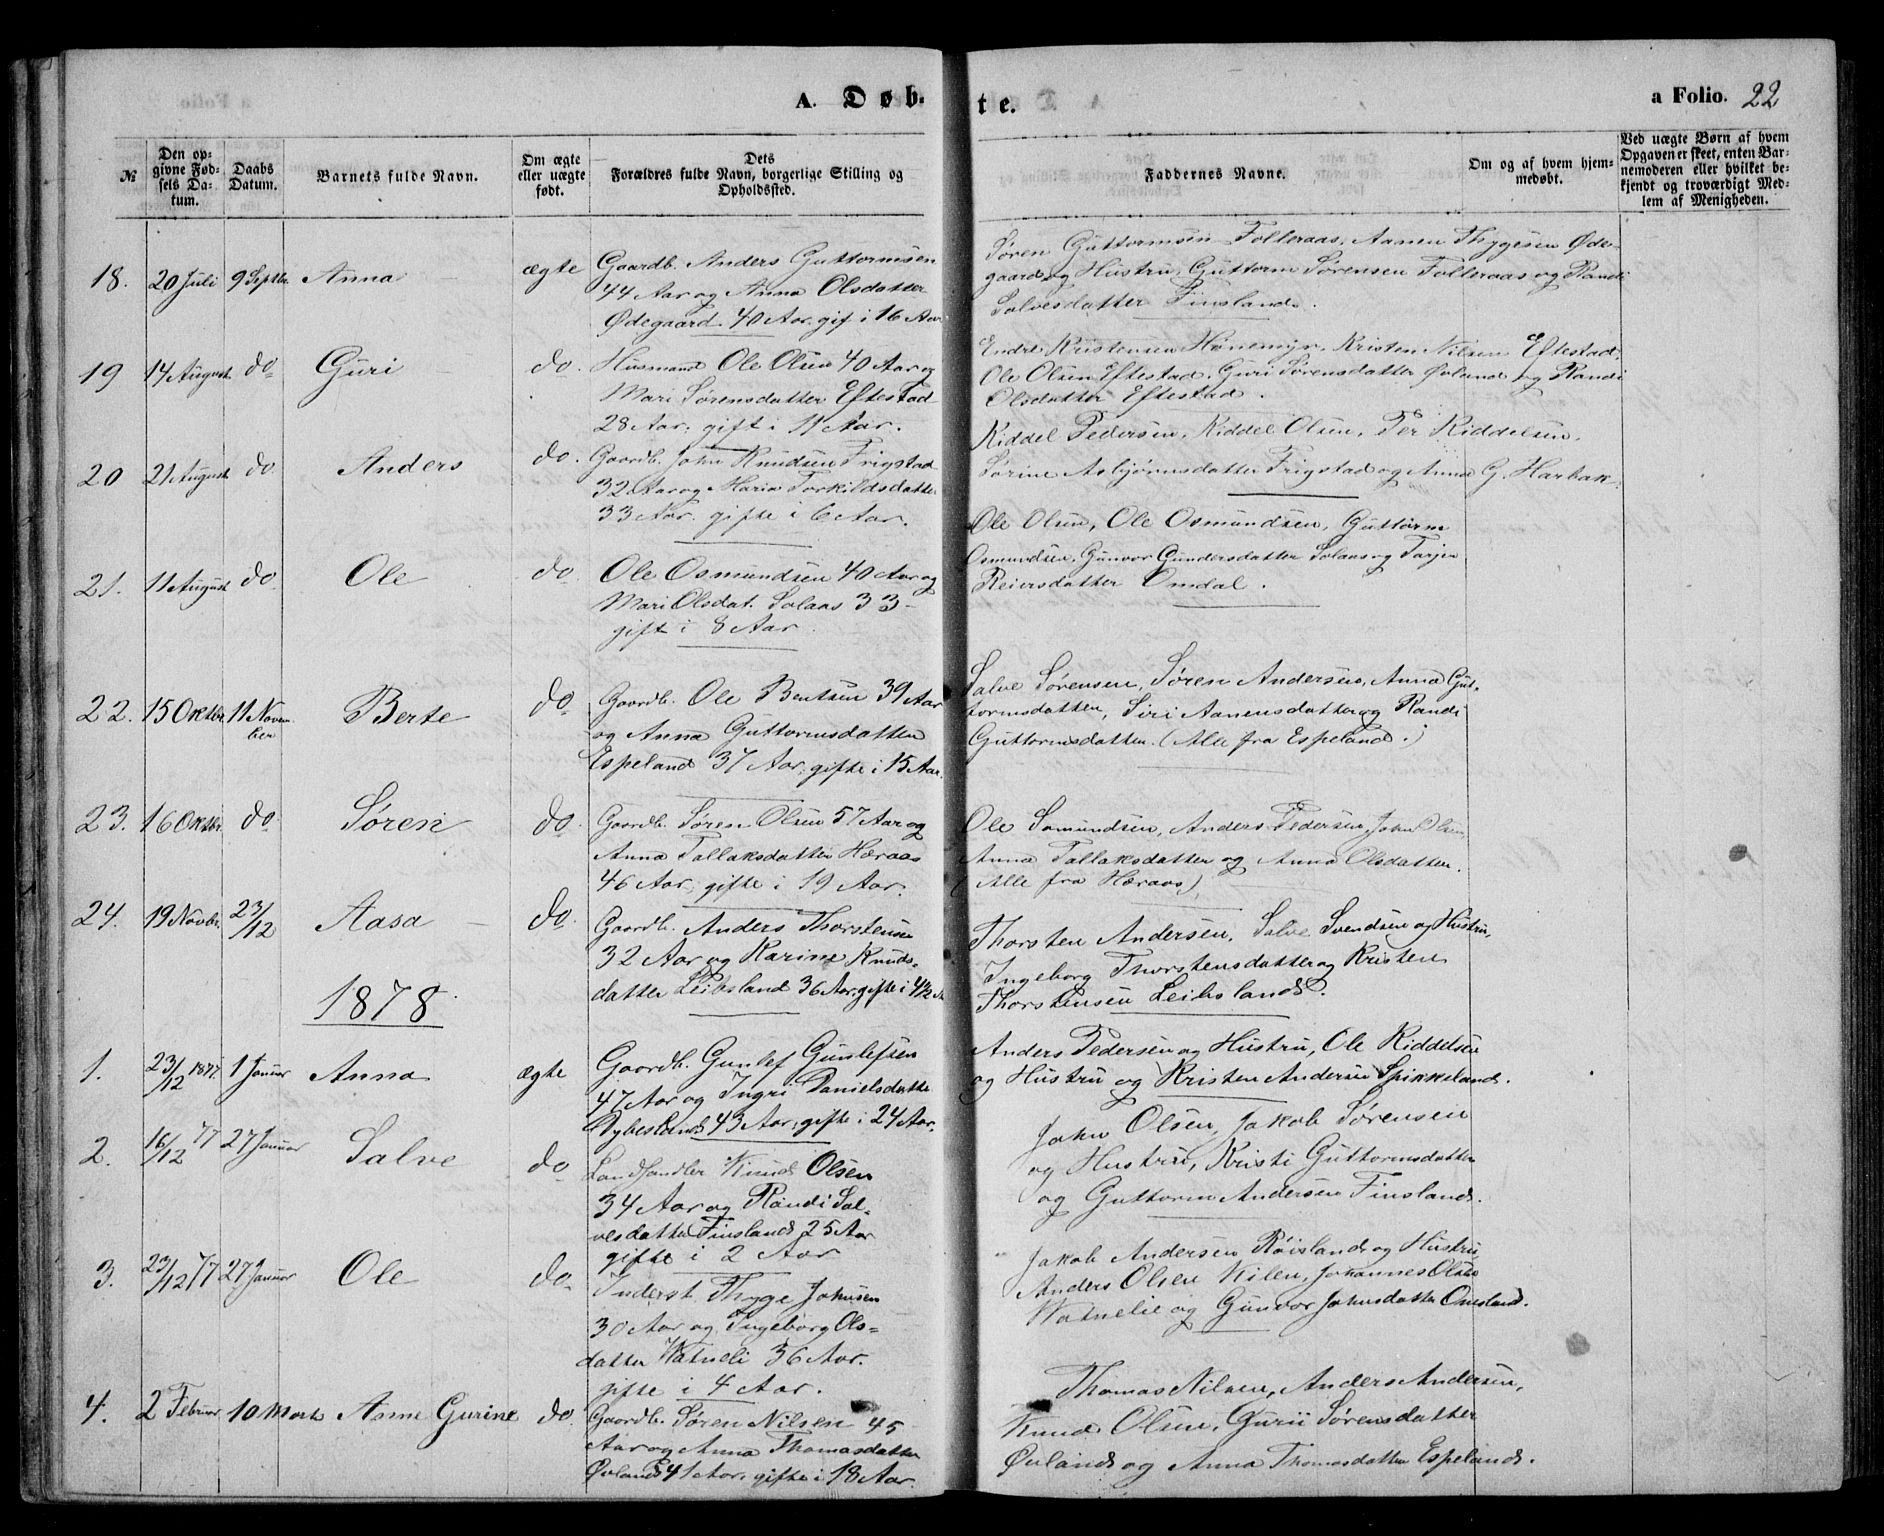 A. Døb-
te.
a Folio. 22
№
Den op-
givne Fød-
sels Da-
tum.
Daabs
Datum.
Barnets fulde Navn.
Om ægte
eller uægte
født.
Dets
Forældres fulde Navn, borgerlige Stilling og
Opholdssted.
Faddernes Navne.
Om og af hvem hjem-
medøbt.
Ved uægte Børn af hvem
Opgaven er skeet, enten Bar-
nemoderen eller hvilket be-
kjendt og troværdigt Med-
lem af Menigheden.
18. 20 Juli 9 Septbr. Anna ægte
Gaardb. Anders Guttormsen
44 Aar og Anna Olsdatter
Ødegaard 40 Aar, gift i 16 Aar
Søren Guttormsen Folleraas, Aanen Thygesen Øde-
gaard og Hustru, Guttorm Sørensen Folleraas og Randi
Salvesdatter Finsland.
19 14 August do Guri do.
Husmand Ole Olsen 40 Aar og
Mari Sørensdatter Eftestad
28 Aar, gift i 11 Aar.
Endre Kristensen Hønemyr, Kristen Nilsen Eftestad,
Ole Olsen Eftestad, Guri Sørensdatter Øvland og Randi
Olsdatter Eftestad.
20 21 August do. Anders do.
Gaardb. John Knudsen Frigstad
32 Aar og Maria Torkildsdatter
33 Aar. gifte i 6 Aar.
Kiddel Pedersen, Kiddel Olsen, Per Kiddelsen,
Sørine Asbjørnsdatter Frigstad og Anna G. Harbak.
21. 11 August do Ole do
Ole Osmundsen 40 Aar og
Mari Olsdat. Solaas 33 -
gift i 8 Aar.
Ole Olsen, Ole Osmundsen, Guttorm
Osmundsen, Gunvor Gundersdatter Solaas og Tarjer
Reiersdatter Omdal.
22. 15 Oktbr 11 Novem
ber
Berte do
Gaardb. Ole Bentsen 39 Aar
og Anna Guttormsdatter
Espeland 37 Aar, gifte i 15 Aar.
Salve Sørensen, Søren Andersen, Anna Gut-
tormsdatter, Siri Aanensdatter og Randi
Guttormsdatter. (Alle fra Espeland.)
23. 16 Oktbr. do Søren do.
Gaardb. Søren Olsen 57 Aar og
Anna Tallaksdatter Høraas
46 Aar, gifte i 19 Aar.
Ole Somundsen, Anders Pedersen, John Olsen,
Anna Tallaksdatter og Anna Olsdatter.
(Alle fra Høraas)
24. 19 Novbr. 23/12 Aasa do.
Gaardb. Anders Thorstensen
32 Aar og Karine Knuds-
datter Leibsland 36 Aar, gifte i 4½ A
Thorsten Andersen, Salve Svendsen og Hustru,
Ingeborg Thorstensdatter og Kristen
Thorstensen Leibsland.
1878.
1. 23/12 1877. 1 Januar Anna ægte
Gaardb. Gunlef Gunlefsen
47 Aar og Ingri Danielsdatte
Dybesland 43 Aar, gifte i 24 Aar.
Anders Pedersen og Hustru, Ole Kiddelsen
og Hustru og Kristen Andersen Spikkeland.
2. 16/12 77 27 Januar Salve do
Landhandler Knud Olsen
34 Aar og Randi Sal-
vesdatter Finsland 25 Aar
gifte i 2 Aar
John Olsen, Jakob Sørensen
og Hustru, Kristi Guttormsdatter
og Guttorm Andersen Finsland.
3. 23/12 77 27 Januar Ole do.
Inderst. Thyge Johnsen
30 Aar og Ingeborg Ols-
datter Vatneli 36 Aar.
gifte i 4 Aar.
Jakob Andersen Røisland og Hustru,
Anders Olsen Kilen, Johannes Olsen
Vatnelie og Gunvor Johnsdatter Omsland.
4. 2 Februar 10 Marts Anne Gurine do.
Gaardb. Søren Nilsen 45
Aar og Anna Thomasdatter
Øvland 41 Aar, gifte i 18 Aar.
Thomas Nilsen, Anders Andersen,
Knud Olsen, Gurii Sørensdatter
Øvland og Anna Thomasdatter Espeland.